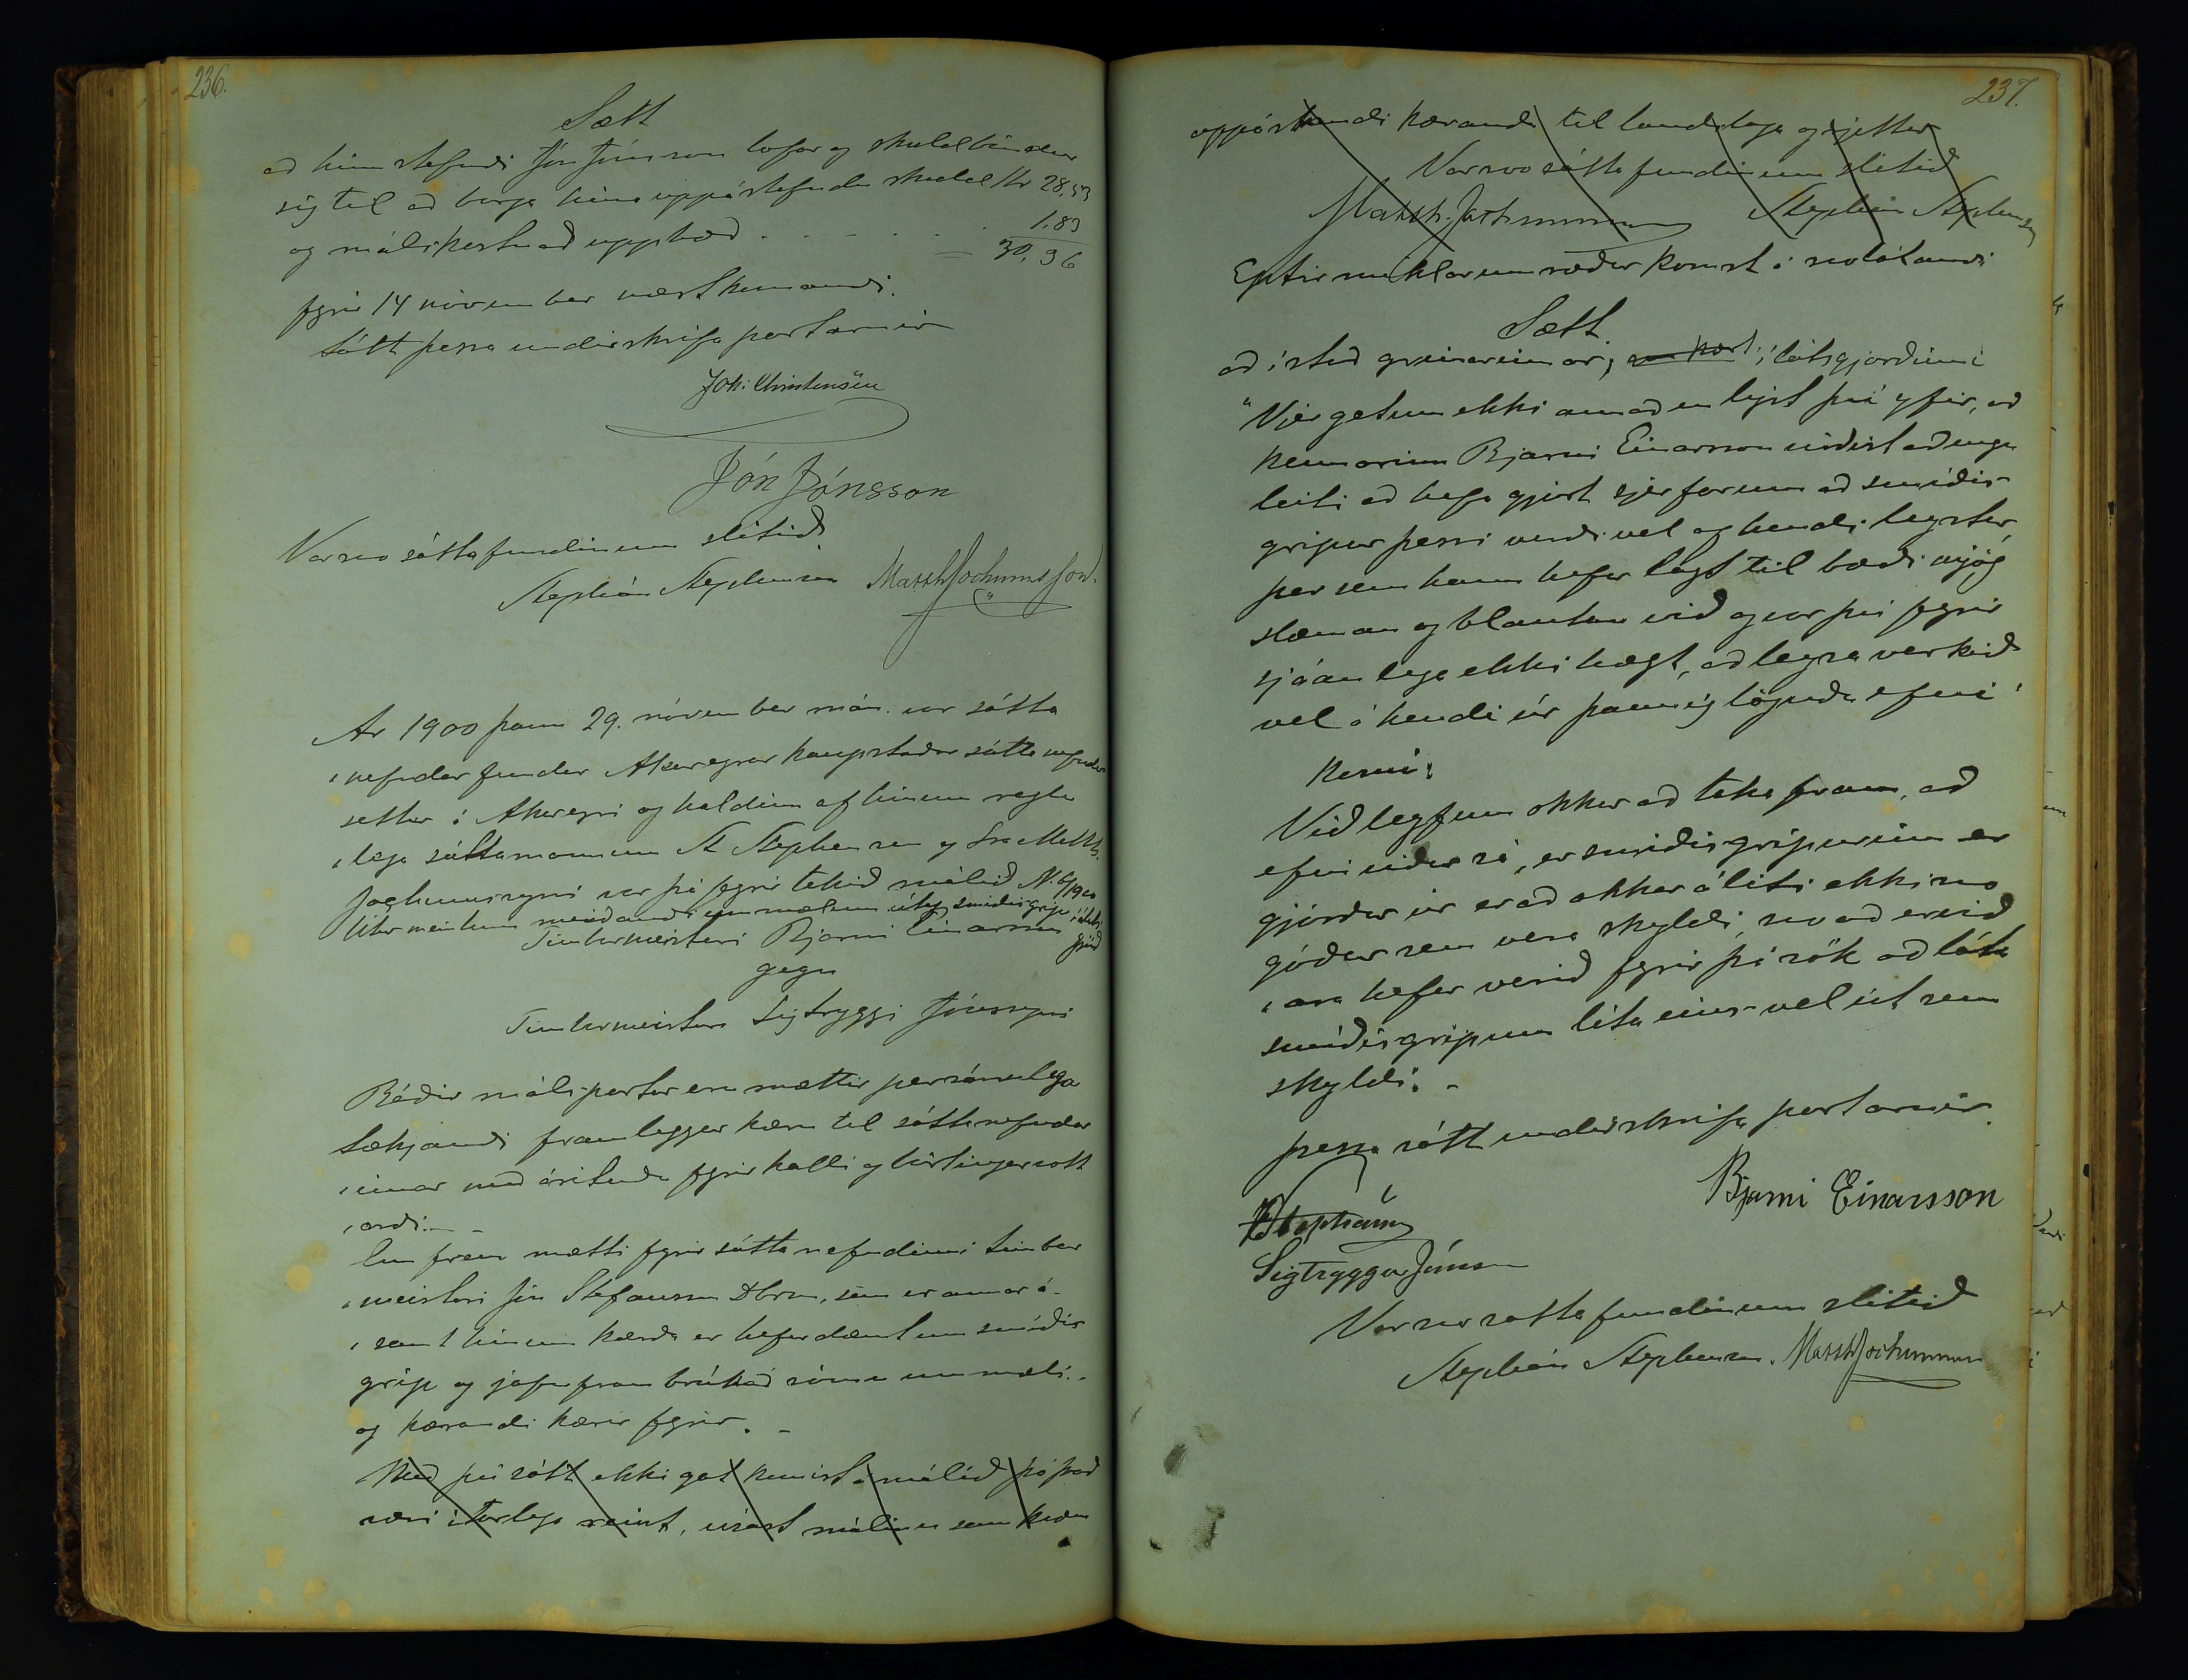 236.
Sætt
að hinn stefndi Jón Jónsson lofar og skuldbindur
sig til að borga hina uppástefndu skuld Kr 28,53
og málskostnað upphæð . . . . . . 1.83
= 30,36
fyrir 14 nóvember næstkomandi.
Sátt þessa undirskrifa partarnir
Joh: Christensen
Jón Jónsson
Var svo sáttafundinum slitið.
Stephán Stephensen MatthJochumsson.
Ár 1900 þann 29. nóvember mán. var sátta
nefndar fundur Akureyrar kaupstaðar sáttanefndar
settur á Akureyri og haldinn af hinum reglu
lega sáttamönnum St Stephensen og Sra Matth.
Jochumssyni var þá fyrir tekið málið N. 6/1900
meiðandi ummælum smíðisgrip
Timburmeistari Bjarni Einarsson
gegn
Timburmeistara Sigtryggi Jónssyni
Báðir málspartar eru mættir persónulega
Sækjandi framleggur kæru til sáttanefndar
innar með árituðu fyrirkalli og birtingarvott
orði. -
Enn fremur mætti fyrir sáttanefndinni timbur
meistari Jón Stefánsson Dbrm, sem er annar á-
samt hinum kærða er hefur dæmt um smíðis
grip og jafnframt brúkað sömu ummæli..
og kærandi kærir fyrir. -
Með því sátt ekki gat komist á málið þó það
væri ítarlega reint, vísast málinu sem
237.
uppástandi kærandi til landslaga og rjettar
Var svo sáttafundinum slitið
Matth. Jochumsson Stephán Stephensen
Eptir miklar umræður komst á svolátandi
Sætt.
að í stað greinarinnar, í álitsgjörðinni
"Vjer getum ekki annað en lýst því yfir, að
kennarinn Bjarni Einarsson virðist að engu
leiti að hafa gjört sjer far um að smíðis-
gripur þessi verði vel af hendi leystur,
þar sem hann hefur lagt til bæði mjög
slæman og blautan við og var því fyrir
sjáanlega ekki hægt, að leysa verkið
vel á hendi úr þannig löguðu efni"
komi:
Við leyfum okkur að taka fram, að
efniviður sá, er smíðisgripurinn er
gjörður úr er að okkar áliti ekki svo
góður sem vera skyldi, svo að ervið
ara hefur verið fyrir þá sök að láta
smíðisgripinn líta eins vel út sem
skyldi. -
þessa sátt undirskrifa partarnir.
Bjarni Einarsson
Sigtryggur Jónsson
Var svo sáttafundinum slitið
Stephán Stephensen. MatthJochumsson